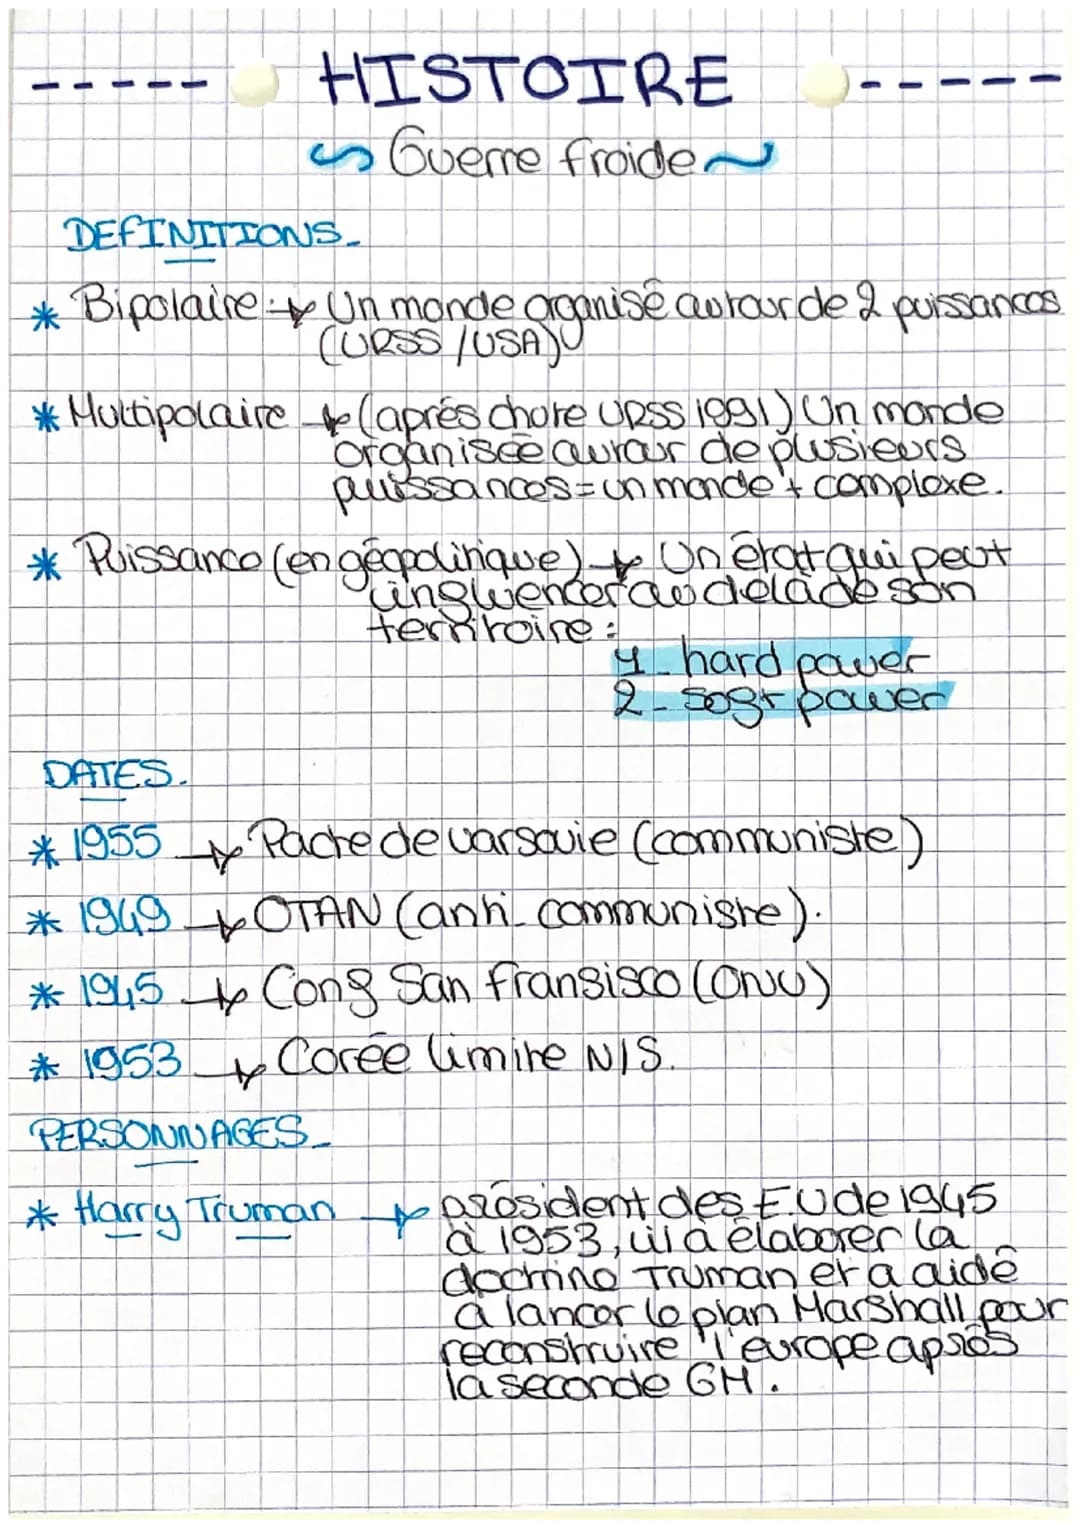 HISTOIRE
Guerre froide
DEFINITIONS_
* Bipolaire : → Un monde organisé autour de 2 puissances
(URSS / USA)
* Multipolaire → (après chute URSS 1991) Un monde
organisée autour de plusieurs
puissances = un monde + complexe.
* Puissance (en géopolitique) → Un état qui peut
influencer au delà de son
territoire :
1_ hard power
2_ soft power
DATES_
* 1955 → Pacte de varsovie (communiste)
* 1949 → OTAN (anti_communiste).
* 1945 → Conf San fransisco (ONU)
* 1953 → Corée limite N/S.
PERSONNAGES_
* Harry Truman → président des E.U de 1945
à 1953, il a élaborer la
doctrine Truman et a aidé
à lancer le plan Marshall pour
reconstruire l'europe après
la seconde GM.